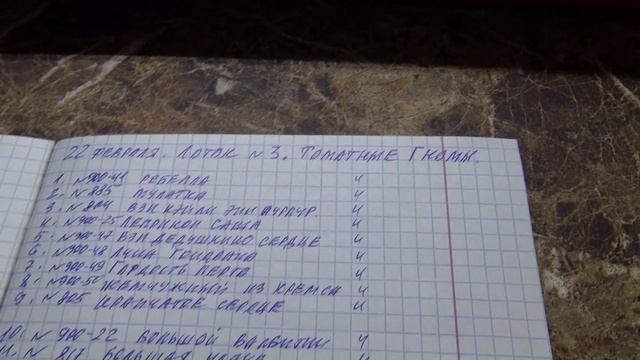 22 ФЕВРАЛЯ. ЛОТОК №3. ТОМАТНЫЕ ГНОМЫ.
1. №900-41 РЕБЕЛЛА 4
2. №835 МУЛАТКА 4
3. №804 ВЭН 4
4. №900-25 ЛЕПРИКОН САША 4
5. №900-47 ВЭЛ ДЕДУШКИНО СЕРДЦЕ 4
6. №900-48 4
7. №900-49 ГОРДОСТЬ ПЕРТА 4
8. №900-50 ЖЕМЧУЖНЫЙ ИЗ КРЕМСА 4
9. №805 КРАПЧАТОЕ СЕРДЦЕ 4
10. №900-22 БОЛЬШОЙ 4
11. №817 БОЛЬШАЯ